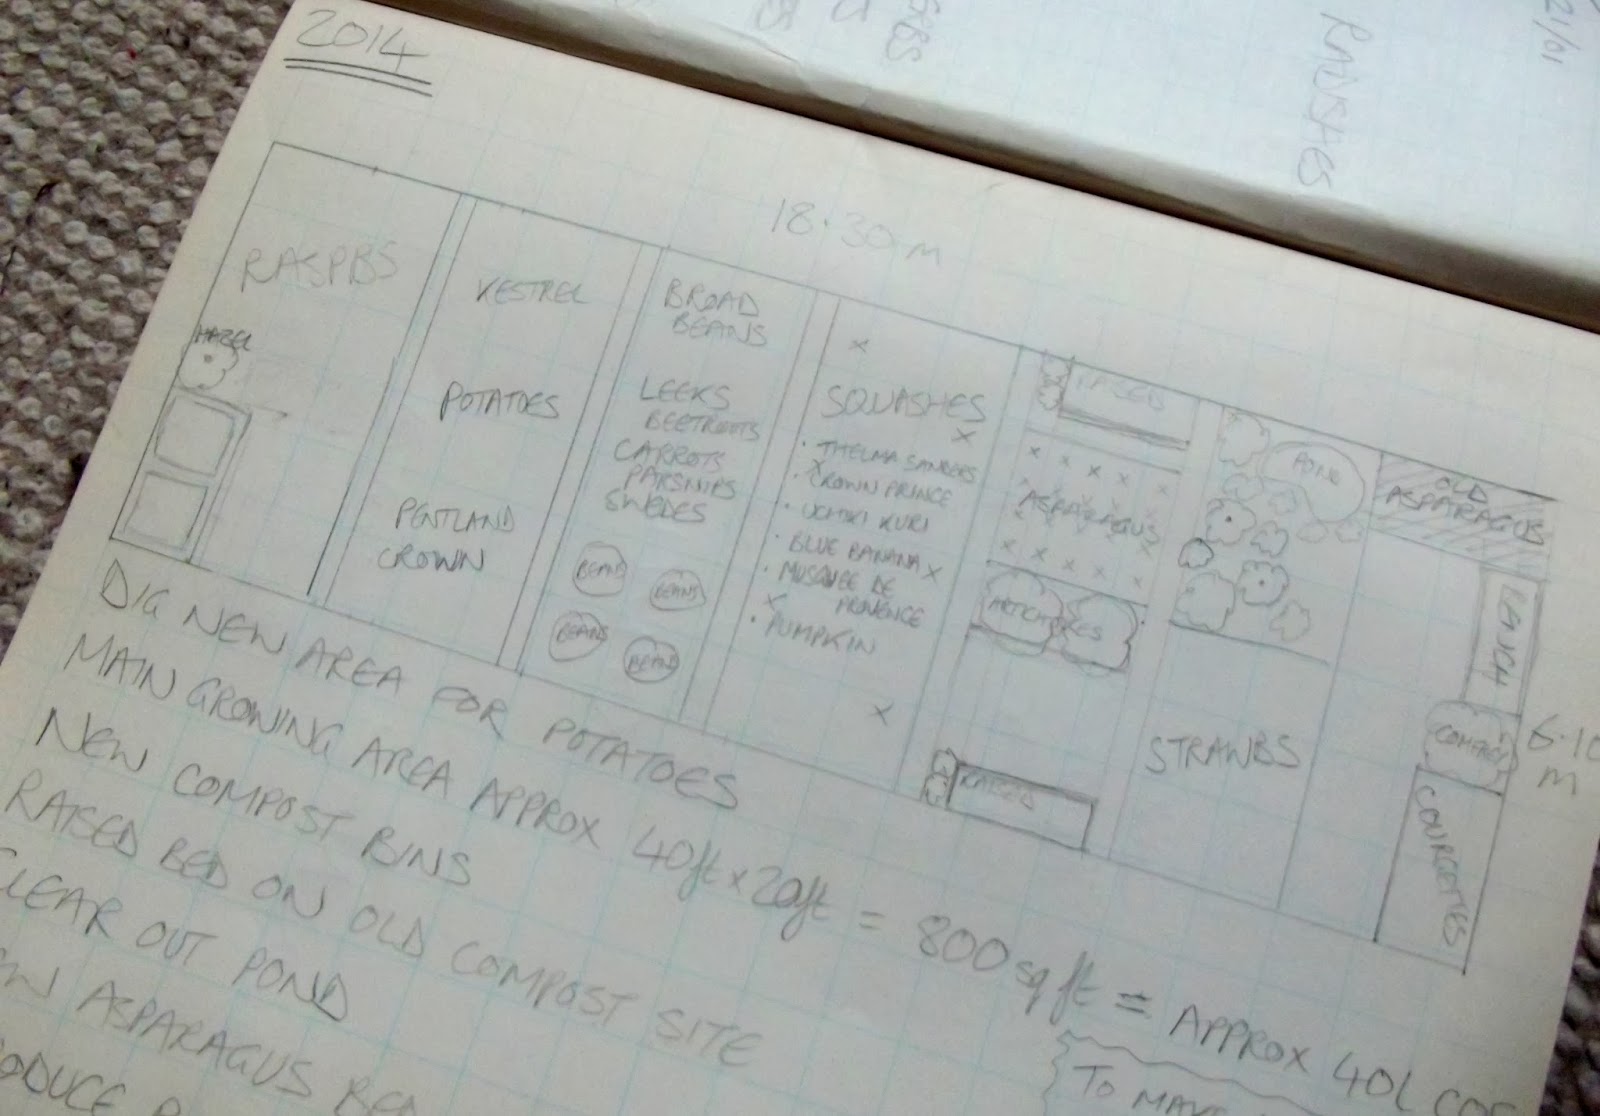 2014
18.30 m
RASPBS
HAZEL
KESTREL
POTATOES
PENTLAND
CROWN
BROAD
BEANS
LEEKS
BEETROOTS
CARROTS
PARSNIPS
SWEDES
BEANS
BEANS
BEANS
BEANS
SQUASHES
· THELMA SANDERS
· CROWN PRINCE
· UCHIKI KURI
· BLUE BANANA
· MUSQUEE DE
PROVENCE
· PUMPKIN
RAISED
ASPARAGUS
ARTICHOKES
RAISED
POND
STRAWBS
OLD
ASPARAGUS
COMPOST
COURGETTES
6.10
m
DIG NEW AREA FOR POTATOES
MAIN GROWING AREA APPROX 40ft x 20ft = 800 sq ft = APPROX 40L
NEW COMPOST BINS
RAISED BED ON OLD COMPOST SITE
CLEAR OUT POND
ASPARAGUS BED
TO MAKE
21/01
RADISHES